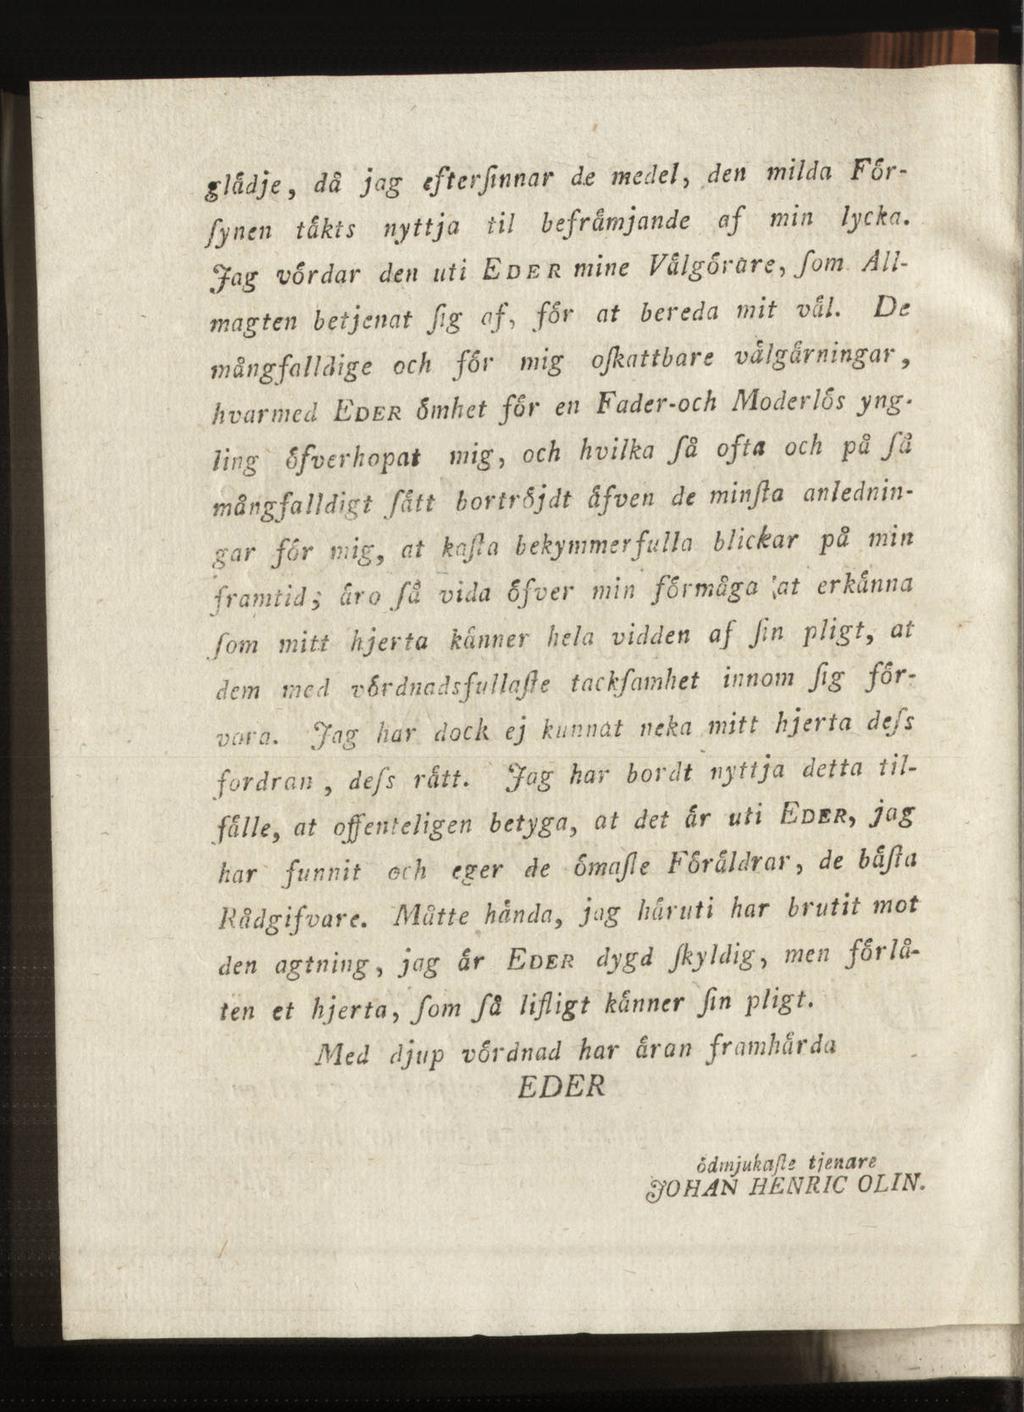 glådje, då jag efterſinnar de medel, den milda För-
ſynen tåkts nyttja til befråmjande af min lycka.
Jag vördar den uti EDER mine Vålgörare, ſom All-
magten betjenat ſig af, för at bereda mit vål. De
mångfalldige och för mig oſkattbare vålgårningar,
hvarmed EDER ömhet för en Fader-och Moderlös yng-
ling öfverhopat mig, och hvilka ſå ofta och på ſå
mångfalldigt ſått bortröjdt åfven de minſta anlednin-
gar för mig, at kaſta bekymmerfulla blickar på min
framtid; åro ſå vida öfver min förmåga at erkånna
ſom mitt hjerta kånner hela vidden af ſin pligt, at
dem med vördnadsfullaſte tackſamhet innom ſig för-
vara. Jag har dock ej kunnat neka mitt hjerta deſs
fordran, deſs rått. Jag har bordt nyttja detta til-
fålle, at offenteligen betyga, at det år uti EDER, jag
har funnit och eger de ömaſte Föråldrar, de båſta
Rådgifvare. Måtte hånda, jag håruti har brutit mot
den agtning, jag år EDER dygd ſkyldig, men förlå-
ten et hjerta, ſom ſå lifligt kånner ſin pligt.
Med djup vördnad har åran framhårda
EDER
ödmjukaſte tjenare
JOHAN HENRIC OLIN.